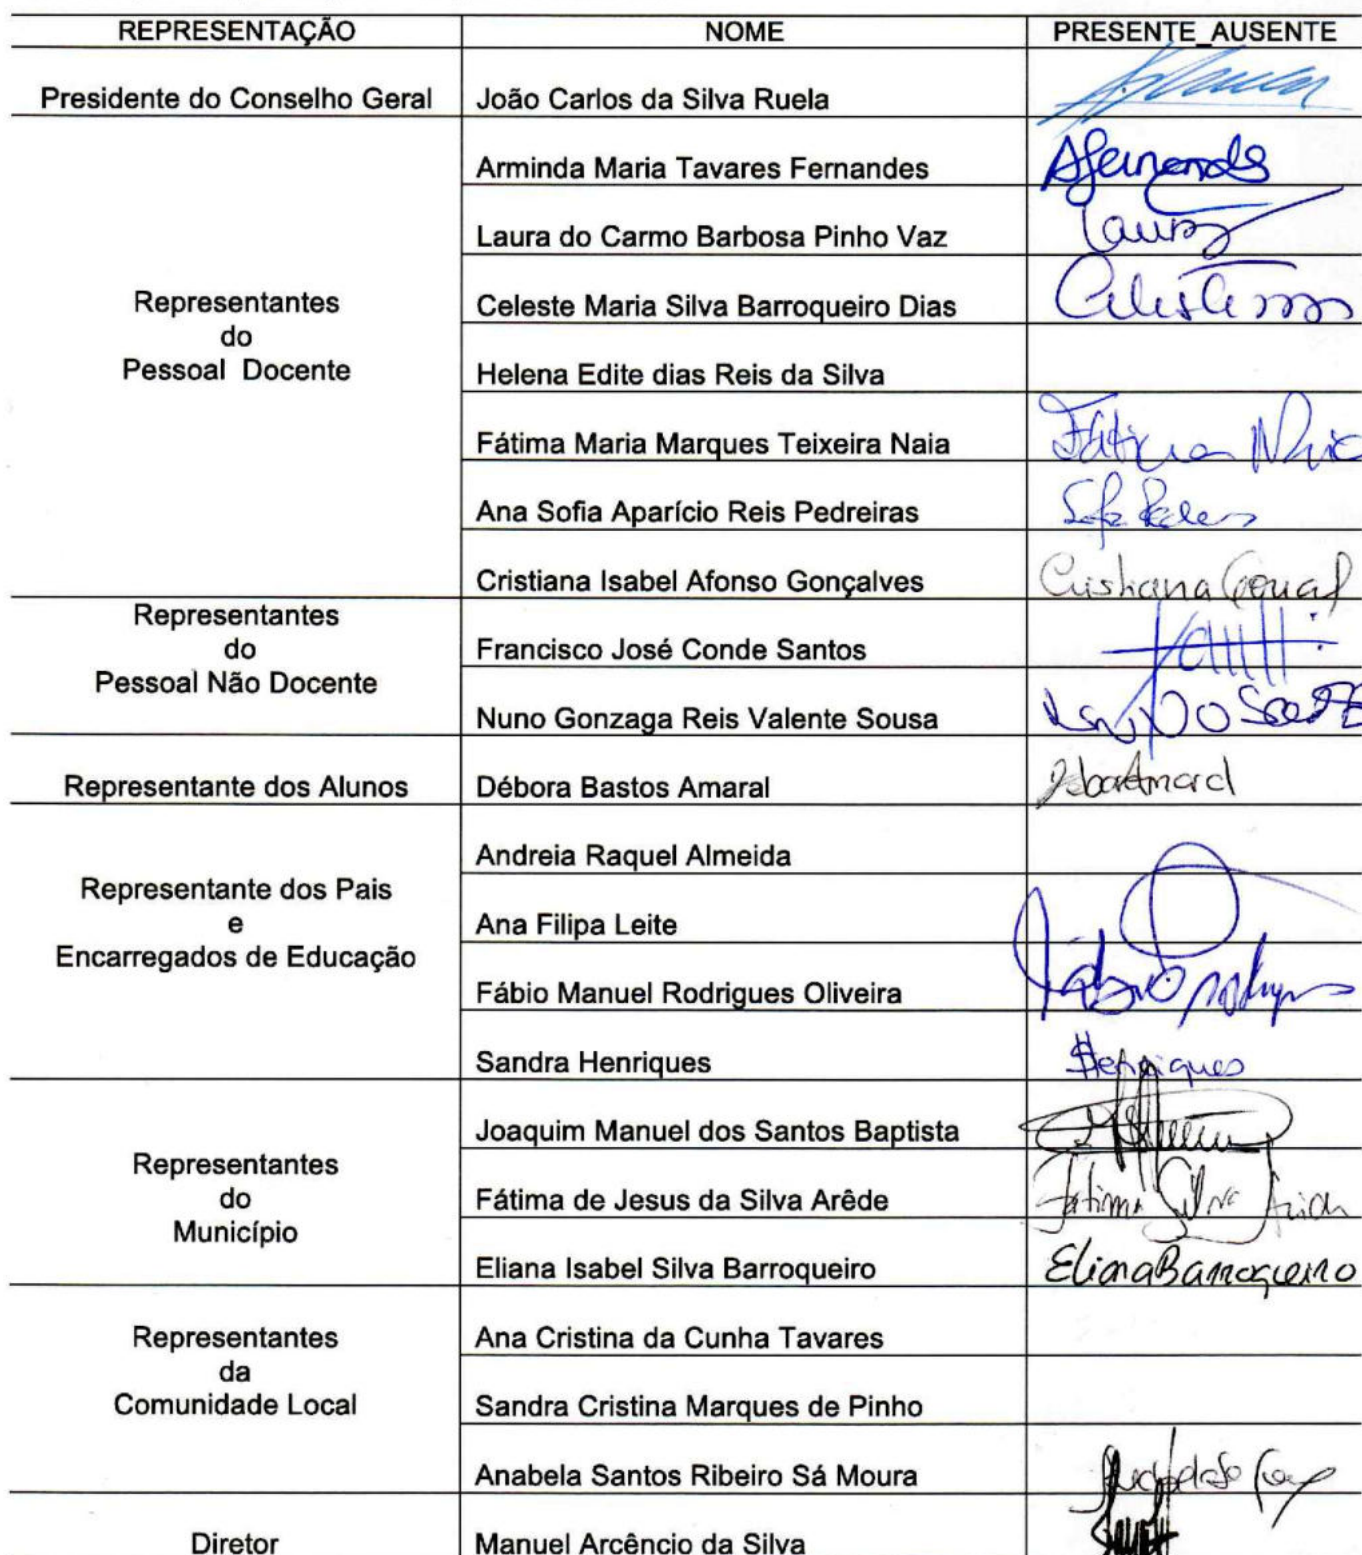 REPRESENTAÇÃO NOME PRESENTE_AUSENTE
Presidente do Conselho Geral João Carlos da Silva Ruela
Arminda Maria Tavares Fernandes Afernandes
Laura do Carmo Barbosa Pinho Vaz Laura
Representantes
do
Pessoal Docente
Celeste Maria Silva Barroqueiro Dias
Helena Edite dias Reis da Silva
Fátima Maria Marques Teixeira Naia Fátima Naia
Ana Sofia Aparício Reis Pedreiras
Cristiana Isabel Afonso Gonçalves Cristiana
Representantes
do
Pessoal Não Docente
Francisco José Conde Santos
Nuno Gonzaga Reis Valente Sousa
Representante dos Alunos Débora Bastos Amaral
Andreia Raquel Almeida
Representante dos Pais
e
Encarregados de Educação
Ana Filipa Leite
Fábio Manuel Rodrigues Oliveira Fábio
Sandra Henriques Henriques
Joaquim Manuel dos Santos Baptista
Representantes
do
Município
Fátima de Jesus da Silva Arêde Fátima Silva
Eliana Isabel Silva Barroqueiro Eliana Barroqueiro
Representantes
da
Comunidade Local
Ana Cristina da Cunha Tavares
Sandra Cristina Marques de Pinho
Anabela Santos Ribeiro Sá Moura
Diretor Manuel Arcêncio da Silva